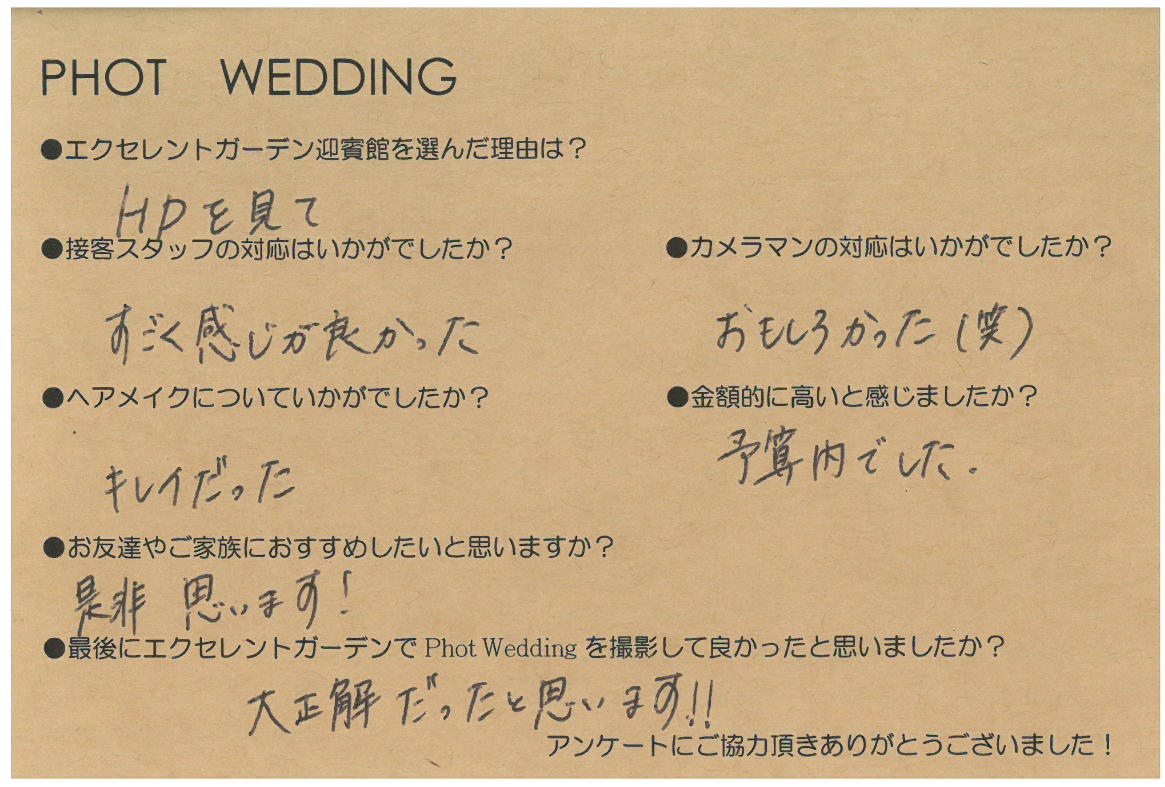 PHOT WEDDING
●エクセレントガーデン迎賓館を選んだ理由は？
HPを見て
●接客スタッフの対応はいかがでしたか？
●カメラマンの対応はいかがでしたか？
すごく感じが良かった
おもしろかった(笑)
●ヘアメイクについていかがでしたか？
●金額的に高いと感じましたか？
キレイだった
予算内でした.
●お友達やご家族におすすめしたいと思いますか？
是非 思います!
●最後にエクセレントガーデンで Phot Wedding を撮影して良かったと思いましたか？
大正解だったと思います!!
アンケートにご協力頂きありがとうございました！